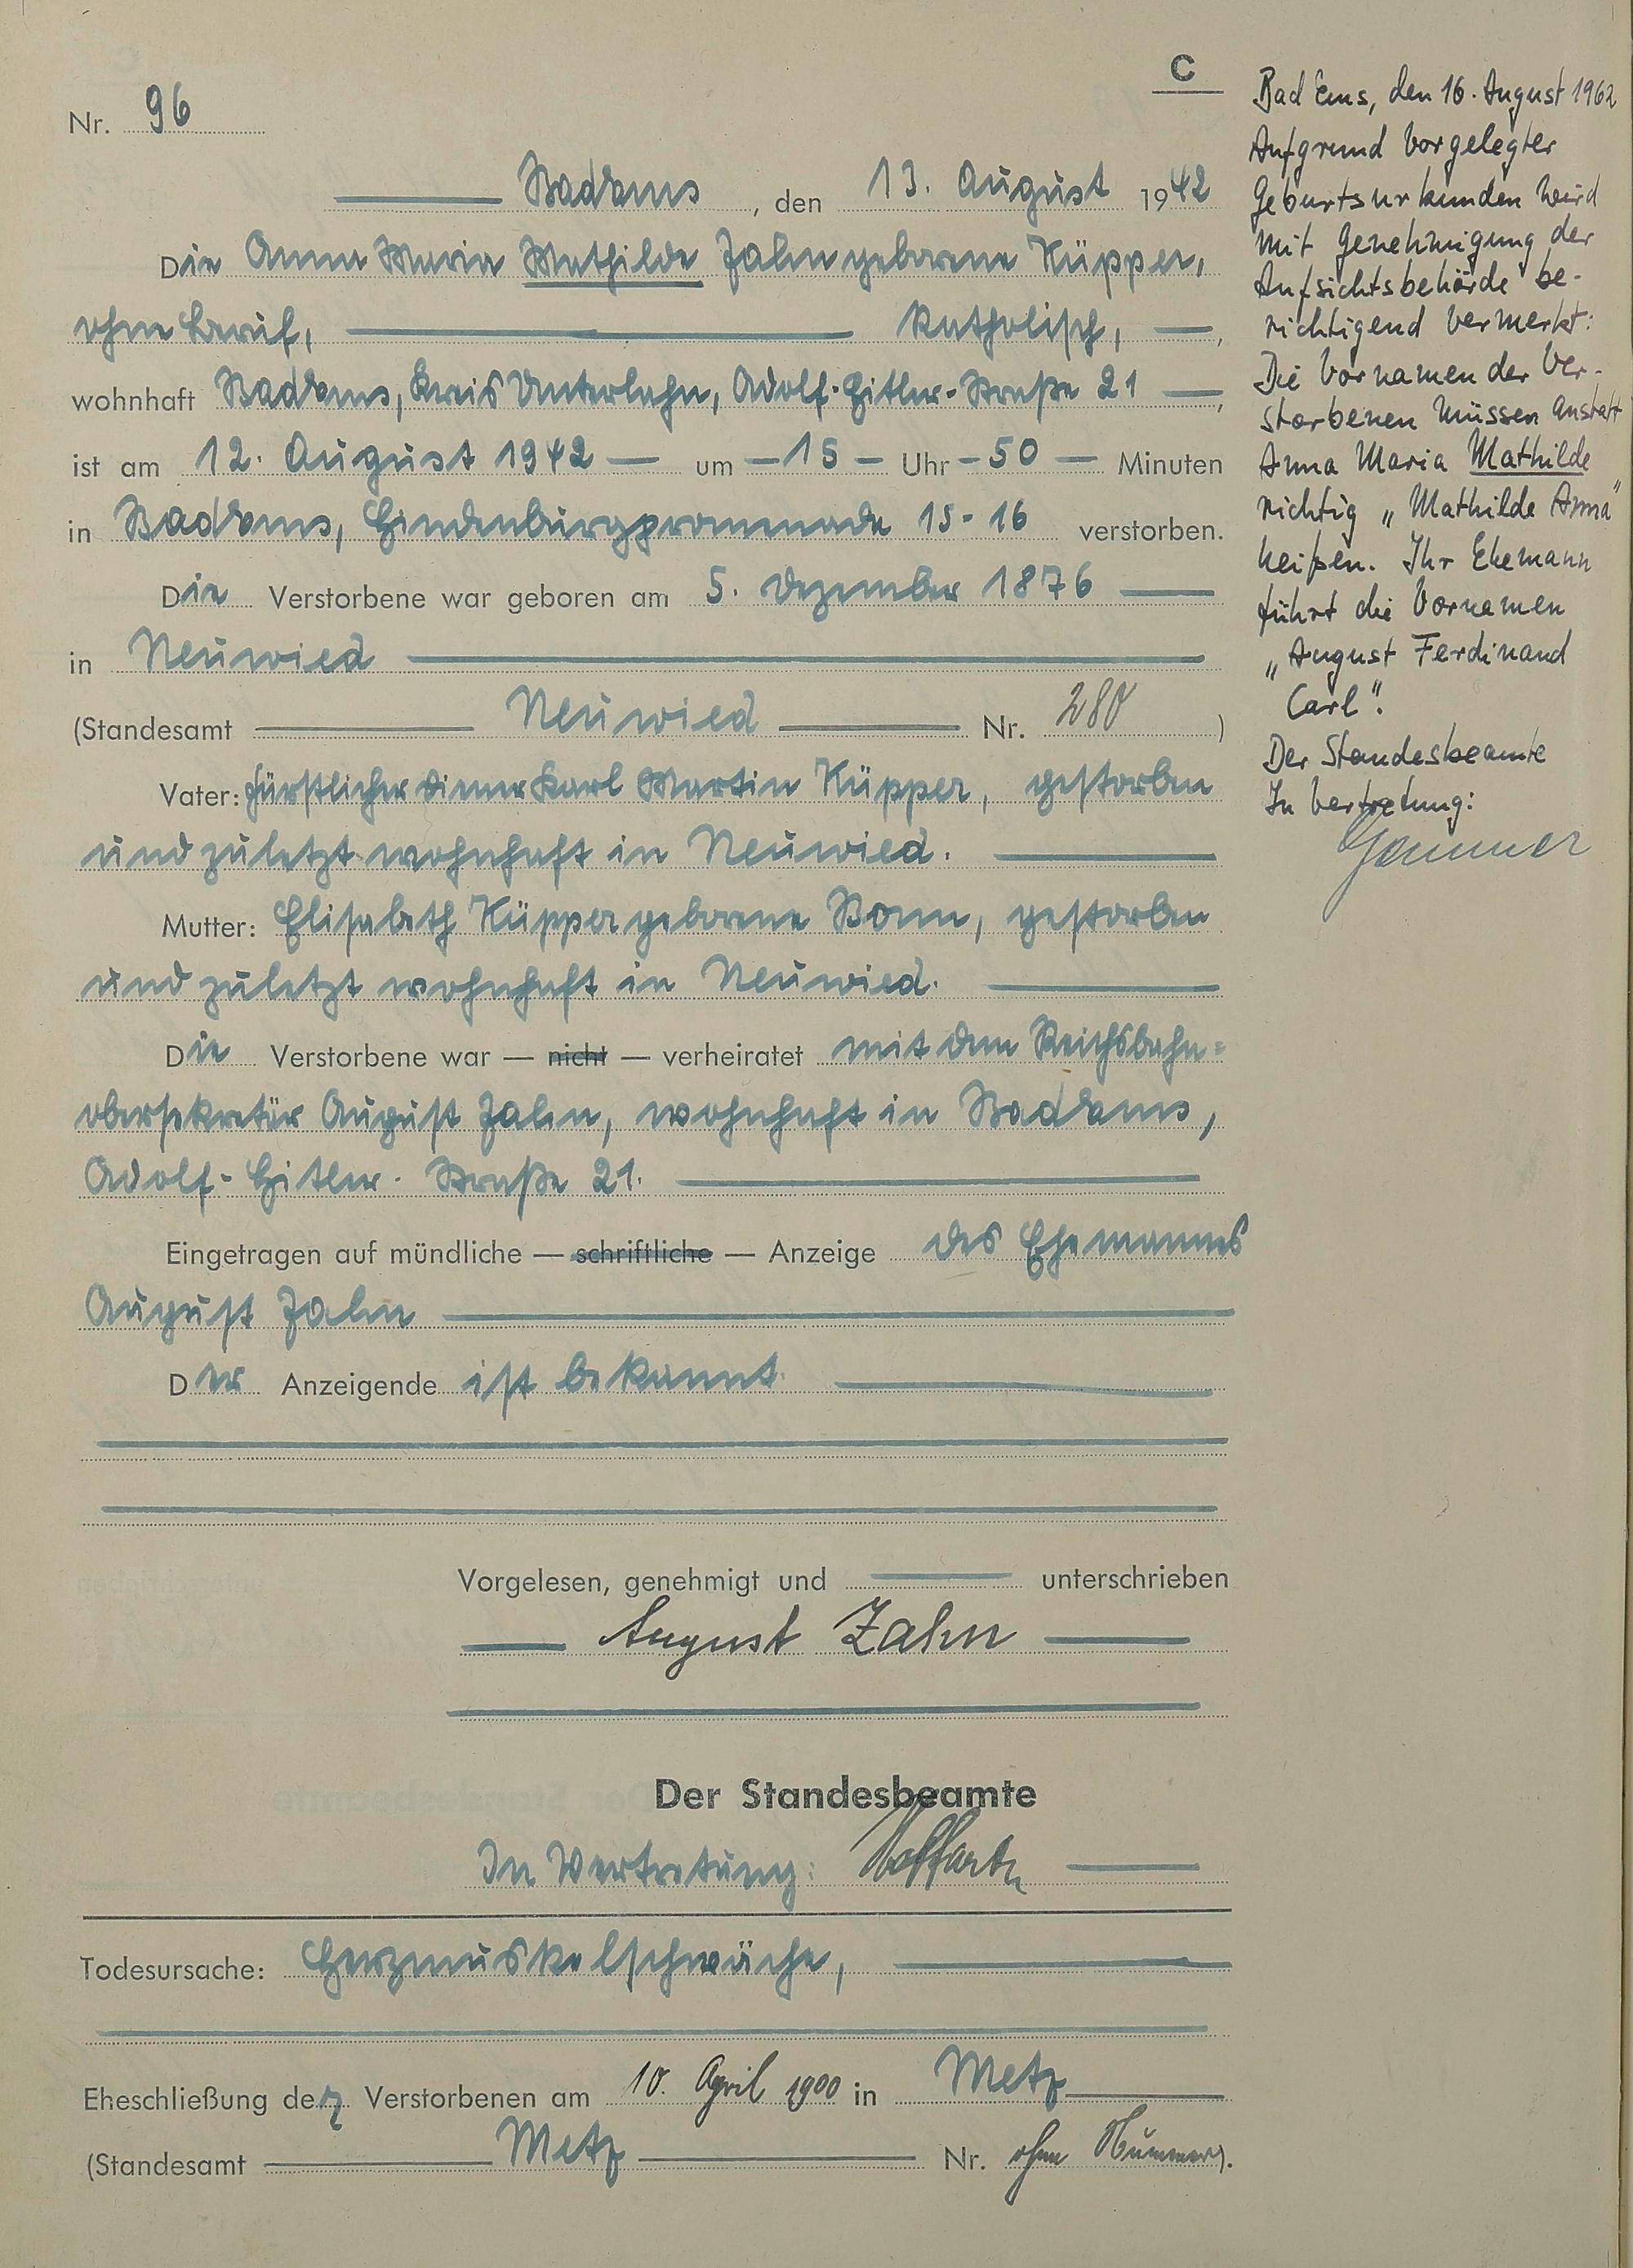 C
Nr. 96
Bad Ems, den 13. August 1942
Die Anna Maria Mathilde Zahn geborene Küpper,
ohne Beruf, katholisch,
wohnhaft Bad Ems, Kreis Unterlahn, Adolf-Hitler-Straße 21,
ist am 12. August 1942 um 15 Uhr 50 Minuten
in Bad Ems, Hindenburgpromenade 15-16 verstorben.
Die Verstorbene war geboren am 5. Dezember 1876
in Neuwied
(Standesamt Neuwied Nr. 280)
Vater: fürstlicher Diener Karl Martin Küpper, gestorben
und zuletzt wohnhaft in Neuwied.
Mutter: Elisabeth Küpper geborene Bonn, gestorben
und zuletzt wohnhaft in Neuwied.
Die Verstorbene war — nicht — verheiratet mit dem Reichsbahn-
obersekretär August Zahn, wohnhaft in Bad Ems,
Adolf-Hitler-Straße 21.
Eingetragen auf mündliche — schriftliche — Anzeige des Ehemannes
August Zahn
Der Anzeigende ist bekannt.
Vorgelesen, genehmigt und unterschrieben
August Zahn
Der Standesbeamte
In Vertretung:
Todesursache: Herzmuskelschwäche,
Eheschließung der Verstorbenen am 10. April 1900 in Metz
(Standesamt Metz Nr. ohne Nummer).
Bad Ems, den 16. August 1962
Aufgrund vorgelegter
Geburtsurkunden wird
mit Genehmigung der
Aufsichtsbehörde be-
richtigend vermerkt:
Die Vornamen der Ver-
storbenen müssen anstatt
Anna Maria Mathilde
richtig „Mathilde Anna"
heißen. Ihr Ehemann
führt die Vornamen
„August Ferdinand
Carl".
Der Standesbeamte
In Vertretung: